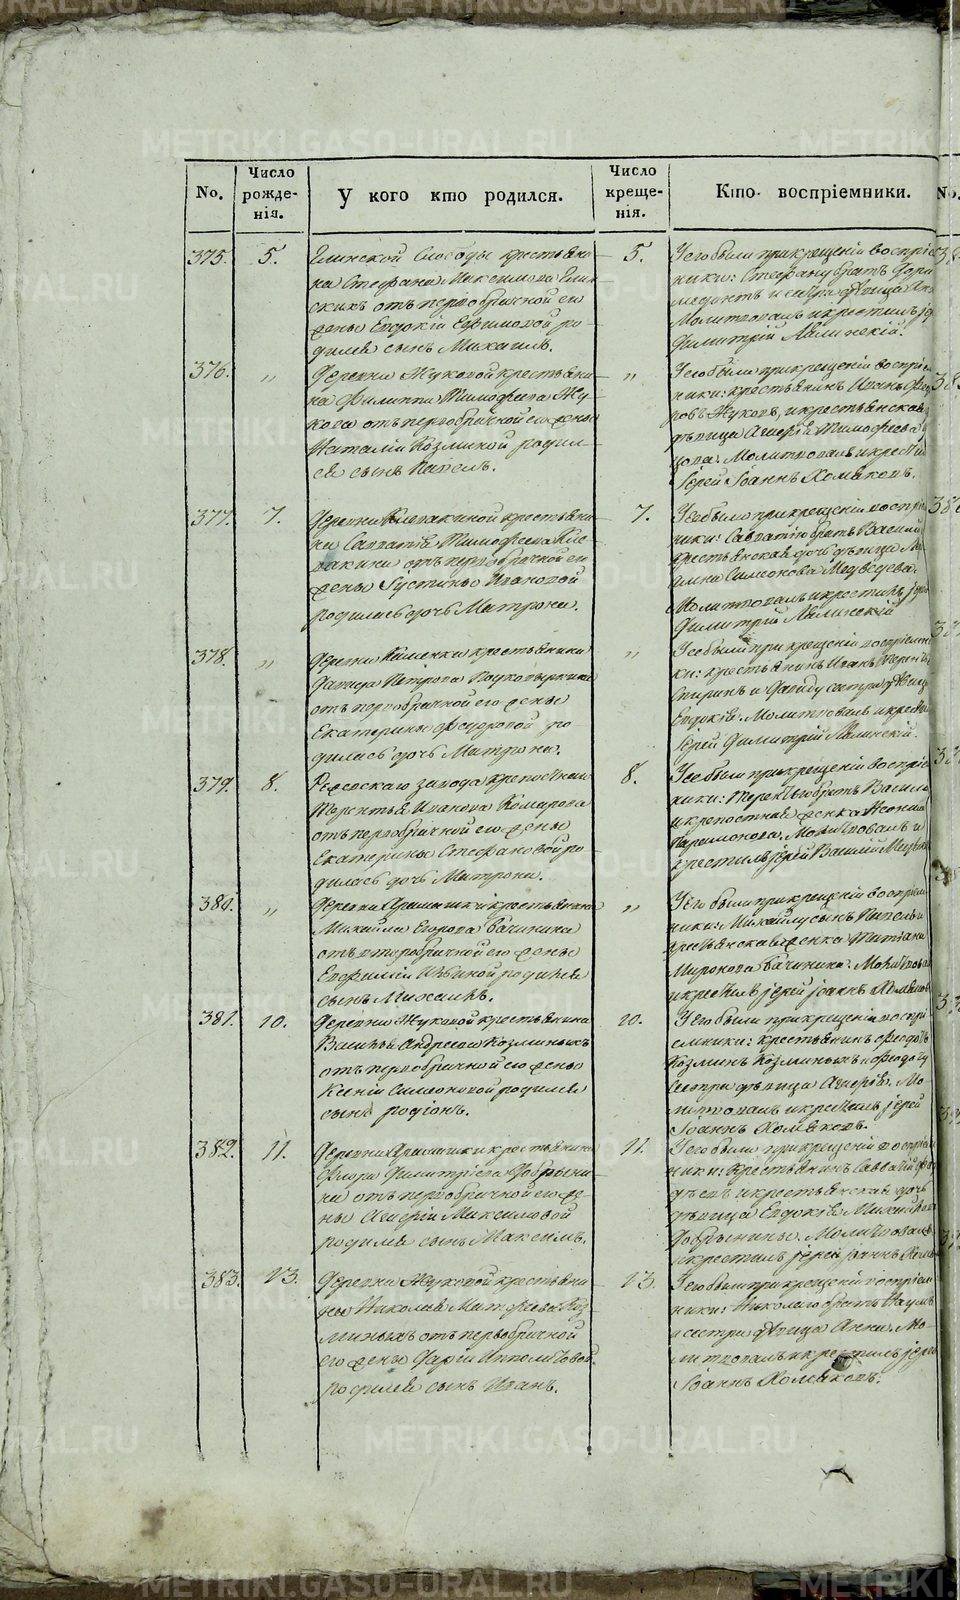 METRIKI.GASO-URAL.RU
No. Число рожде- нія. У кого кто родился. Число креще- нія. Кто воспріемники.
375. 5. Глинской Слободы крестьяни-
на Стефана Максимова Глин-
скихъ отъ первобрачной его
жены Евдокіи Ефимовой ро-
дился сынъ Михаилъ.
5. У сего были при крещеніи воспріем-
ники: Стефану братъ
и сестра дѣвица
Молитвовалъ и крестилъ іер
Димитрій Ляпинскій.
376. „ Деревни Жуковой крестьяни-
на Филиппа Тимофеева Жу-
кова отъ первобрачной его жены
Наталіи Козминой родил-
ся сынъ Павелъ.
„ У сего были при крещеніи воспріем-
ники: крестьянинъ Иванъ Фео
ровъ Жуковъ, и крестьянская
дѣвица Агнерія Тимофеева
Молитвовалъ и крестил
Іерей Іоаннъ Хомяковъ.
377. 7. Деревни Кисвакиной крестьяни-
на Савватія Тимофеева Кис-
вакина отъ первобрачной его
жены Іустиньи Ивановой
родилась дочь Матрона.
7. У сей были при крещеніи воспріем
ники: Савватію братъ Василій
крестьянская дочь дѣвица
Симеонова Медведева.
Молитвовалъ и крестилъ іерей
Димитрій Ляпинскій
378. „ Деревни Каменки крестьянина
Давида Петрова
отъ первобрачной его жены
Екатерины Федоровой ро-
дилась дочь Матрона.
„ У сей были при крещеніи воспріемни-
ки: крестьянинъ Иванъ
Спиринъ и Давиду сестра дѣвица
Евдокія. Молитвовалъ и крестил
Іерей Димитрій Ляпинскій.
379. 8. Режевскаго завода крепостнаго
Терентья Иванова Комарова
отъ первобрачной его жены
Екатерины Стефановой ро-
дилась дочь Матрона.
8. У сей были при крещеніи воспріем
ники: Терентью братъ Василій
и крепостная женка
Парамонова. Молитвовалъ и
крестилъ іерей Василій
380. „ Деревни Арамашки крестьянина
Михаила Егорова Бачинина
отъ второбрачной его жены
Евфиміи Ильиной родился
сынъ Михаилъ.
„ У сего были при крещеніи воспріем
ники: Михаилу сынъ Павелъ и
крестьянская женка Татіана
Миронова Бачинина. Молитвовал
и крестилъ іерей Іоаннъ Хомяков
381. 10. Деревни Жуковой крестьянина
Василья Андреева Козминыхъ
отъ первобрачной его жены
Ксеніи Симеоновой родился
сынъ Родіонъ.
10. У сего были при крещеніи воспрі-
емники: крестьянинъ Феодотъ
Козминъ Козминыхъ и Феодоту
сестра дѣвица Агнерія. Мо-
литвовалъ и крестилъ іерей
Іоаннъ Хомяковъ.
382. 11. Деревни Арамашки крестьянина
Флора Димитріева Добрыни-
на отъ первобрачной его же-
ны Агнеріи Максимовой
родился сынъ Максимъ.
11. У сего были при крещеніи воспріем
ники: Крестьянинъ Савватій
и крестьянская дочь
дѣвица Евдокія
Добрынины. Молитвовалъ
и крестилъ іерей Іоаннъ Хомя
383. 13. Деревни Жуковой крестьяни-
на Николая Матфеева Коз-
миныхъ отъ первобрачной
его жены Даріи Ипполитовой
родился сынъ Иванъ.
13. У сего были при крещеніи воспріем
ники: Николаю братъ Наумъ
и сестра дѣвица Анна. Мо-
литвовалъ и крестилъ іерей
Іоаннъ Хомяковъ.